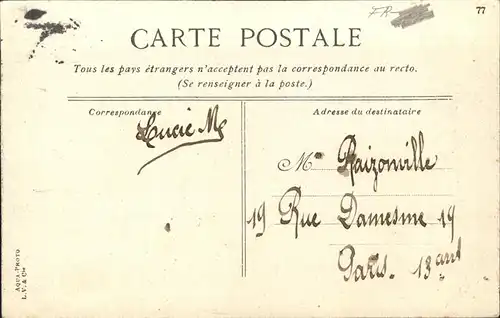 FR
77
CARTE POSTALE
Tous les pays étrangers n'acceptent pas la correspondance au recto.
(Se renseigner à la poste.)
Correspondance
Lucie M
Adresse du destinataire
Mme Raizonville
19 Rue Damesme 19
Paris. 13 arrt
AQUA-PHOTO
L.V. & Cie